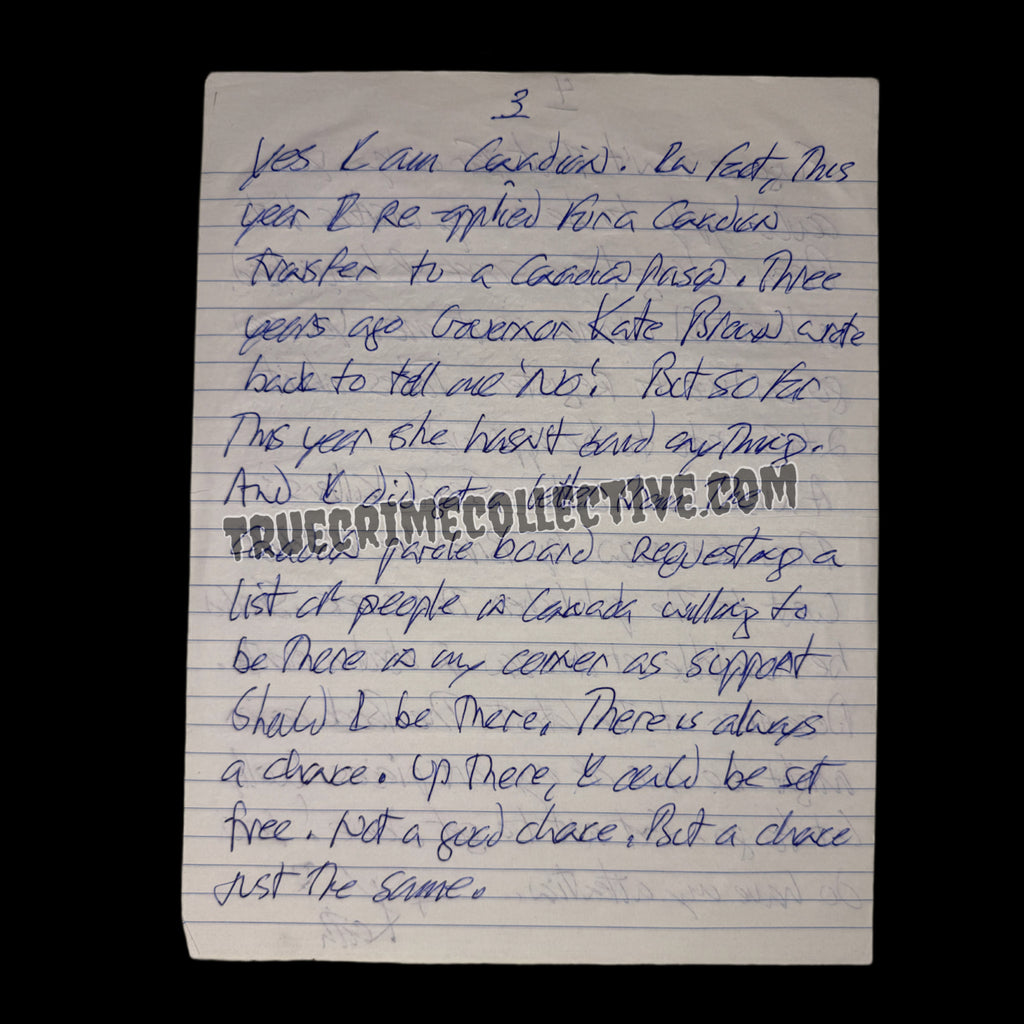 3
Yes I am Canadian. In fact, This
year I Re-applied for a Canadian
Transfer to a Canadian Prison. Three
years ago Governor Kate Brown wrote
back to tell me 'No'. But so far
This year she hasn't said anything.
And I did get a letter from The
TRUECRIMECOLLECTIVE.COM
Canadian parole board requesting a
list of people in Canada willing to
be There in my corner as support
Should I be There. There is always
a chance. Up There, I could be set
free. Not a good chance. But a chance
just The same.